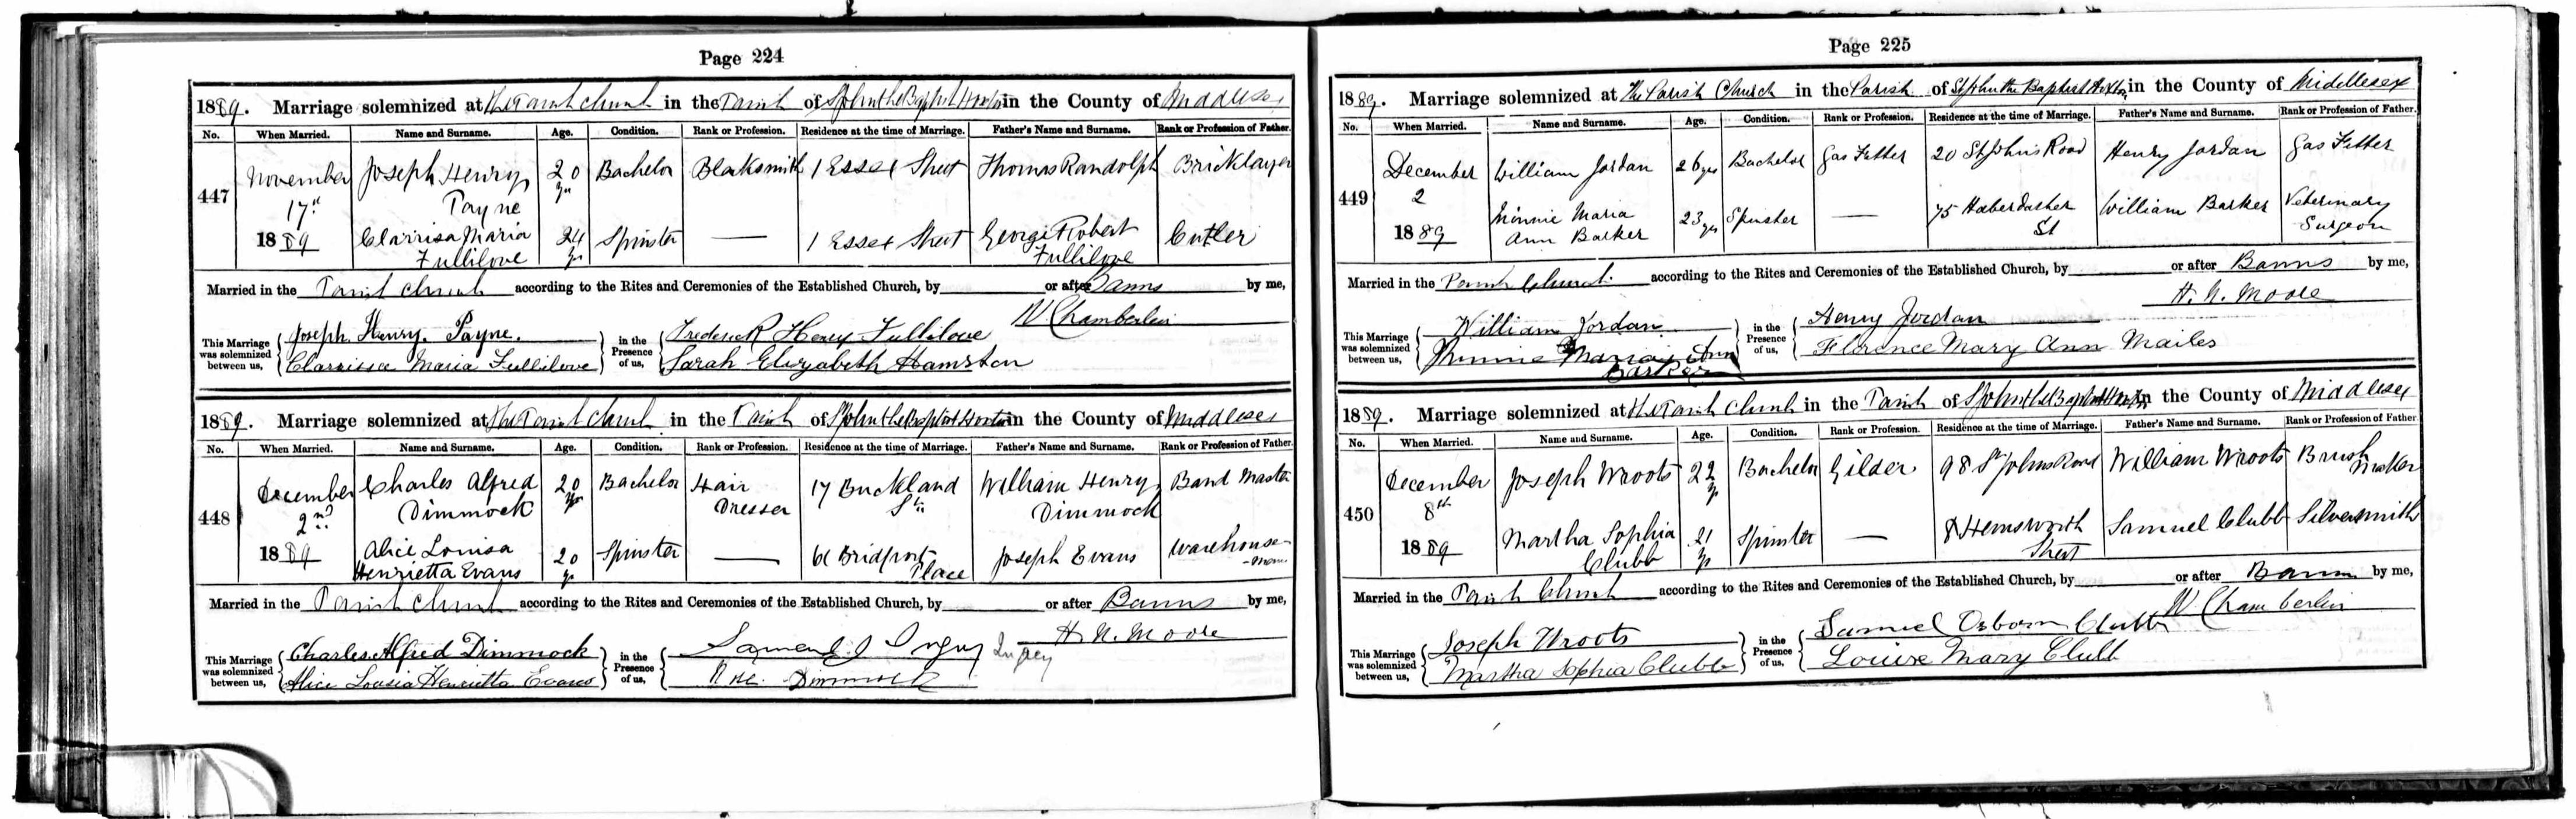 Page 224
1889. Marriage solemnized at The Parish Church in the Parish of St John the Baptist Hoxton in the County of Middlesex
No. When Married. Name and Surname. Age. Condition. Rank or Profession. Residence at the time of Marriage. Father's Name and Surname. Rank or Profession of Father.
447 November 17th 1889
Joseph Henry Payne 20 yrs Bachelor Blacksmith 1 Essex Street Thomas Randolph Bricklayer
Clarrisa Maria Fullilove 24 yrs Spinster — 1 Essex Street George Robert Fullilove Cutler
Married in the Parish Church according to the Rites and Ceremonies of the Established Church, by or after Banns by me,
W Chamberlin
This Marriage was solemnized between us, Joseph Henry. Payne. in the Presence of us, Frederick Henry Fullilove
Clarrissa Maria Fullilove Sarah Elizabeth Hamston
1889. Marriage solemnized at The Parish Church in the Parish of St John the Baptist Hoxton in the County of Middlesex
No. When Married. Name and Surname. Age. Condition. Rank or Profession. Residence at the time of Marriage. Father's Name and Surname. Rank or Profession of Father.
448 December 2nd 1889
Charles Alfred Dimmock 20 yrs Bachelor Hair Dresser 17 Buckland St William Henry Dimmock Band Master
Alice Louisa Henrietta Evans 20 yrs Spinster — 61 Bridport Place Joseph Evans Warehouse-man
Married in the Parish Church according to the Rites and Ceremonies of the Established Church, by or after Banns by me,
H. N. Moore
This Marriage was solemnized between us, Charles Alfred Dimmock in the Presence of us, Samuel J Ingrey Ingrey
Alice Lousia Henrietta Evans Rose Dimmock
Page 225
1889. Marriage solemnized at The Parish Church in the Parish of St John the Baptist Hoxton in the County of Middlesex
No. When Married. Name and Surname. Age. Condition. Rank or Profession. Residence at the time of Marriage. Father's Name and Surname. Rank or Profession of Father.
449 December 2 1889
William Jordan 26 yrs Bachelor Gas Fitter 20 St John's Road Henry Jordan Gas Fitter
Minnie Maria Ann Barker 23 yrs Spinster — 75 Haberdasher St William Barker Veterinary Surgeon
Married in the Parish Church. according to the Rites and Ceremonies of the Established Church, by or after Banns by me,
H. N. Moore
This Marriage was solemnized between us, William Jordan in the Presence of us, Henry Jordan
Minnie Maria Ann Barker Florence Mary Ann Mailes
1889. Marriage solemnized at The Parish Church in the Parish of St John the Baptist Hoxton in the County of Middlesex
No. When Married. Name and Surname. Age. Condition. Rank or Profession. Residence at the time of Marriage. Father's Name and Surname. Rank or Profession of Father.
450 December 8th 1889
Joseph Wroots 22 yrs Bachelor Gilder 98 St Johns Road William Wroots Brush Maker
Martha Sophia Clubb 21 yrs Spinster — 8 Hemsworth Street Samuel Clubb Silversmith
Married in the Parish Church according to the Rites and Ceremonies of the Established Church, by or after Banns by me,
W Chamberlin
This Marriage was solemnized between us, Joseph Wroots in the Presence of us, Samuel Osborn Clubb
Martha Sophia Clubb Louise Mary Clubb